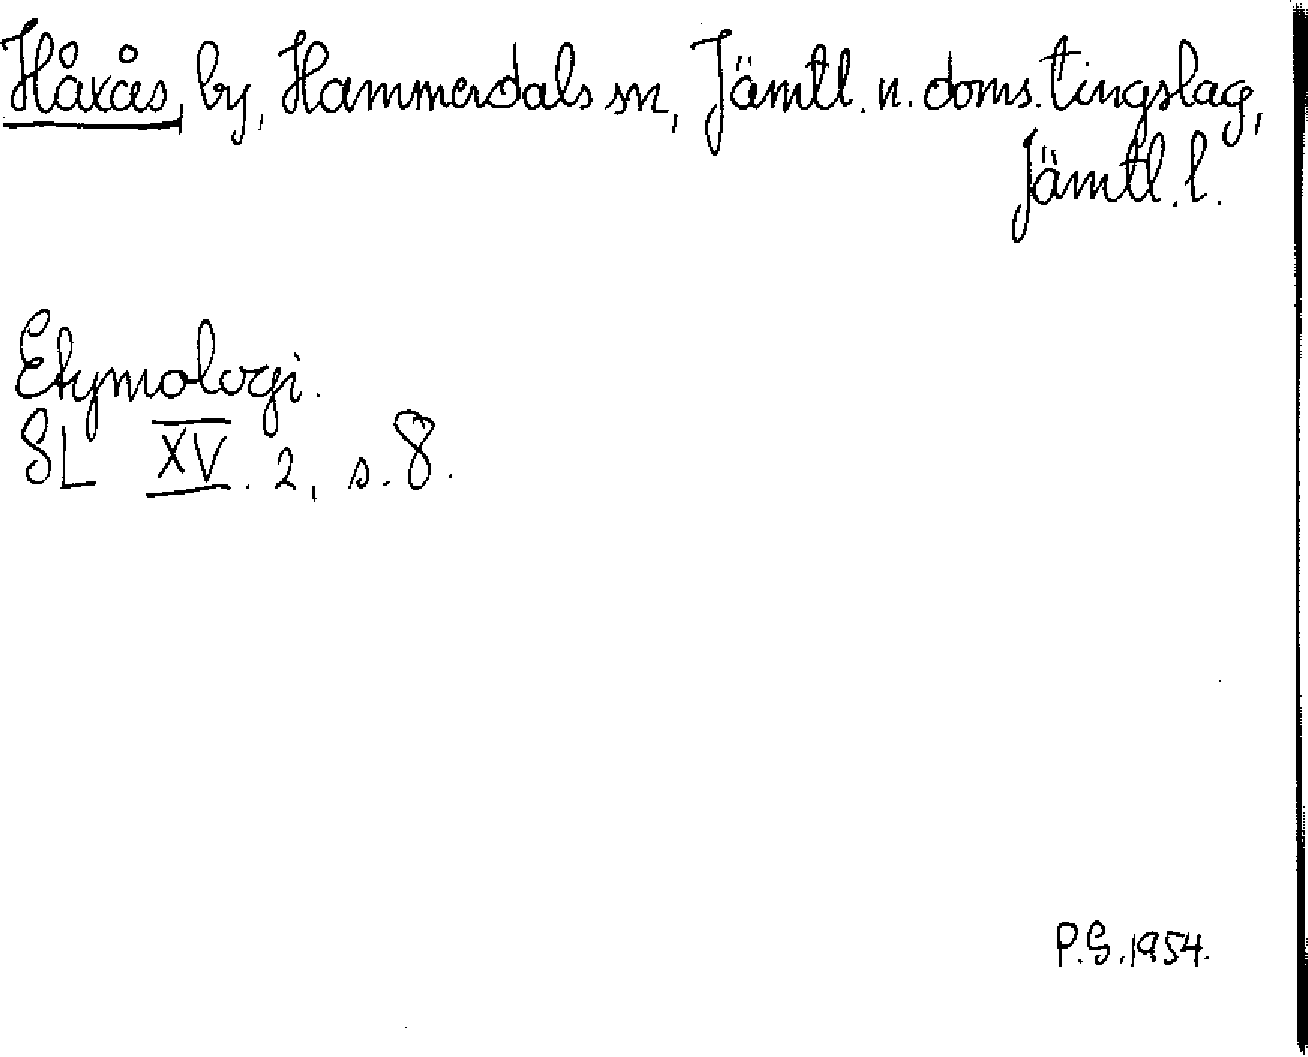 Håxås, by, Hammerdals sn, Jämtl. n. doms. tingslag,
Jämtl. l.
Etymologi.
SL XV. 2, s. 8.
P.S. 1954.